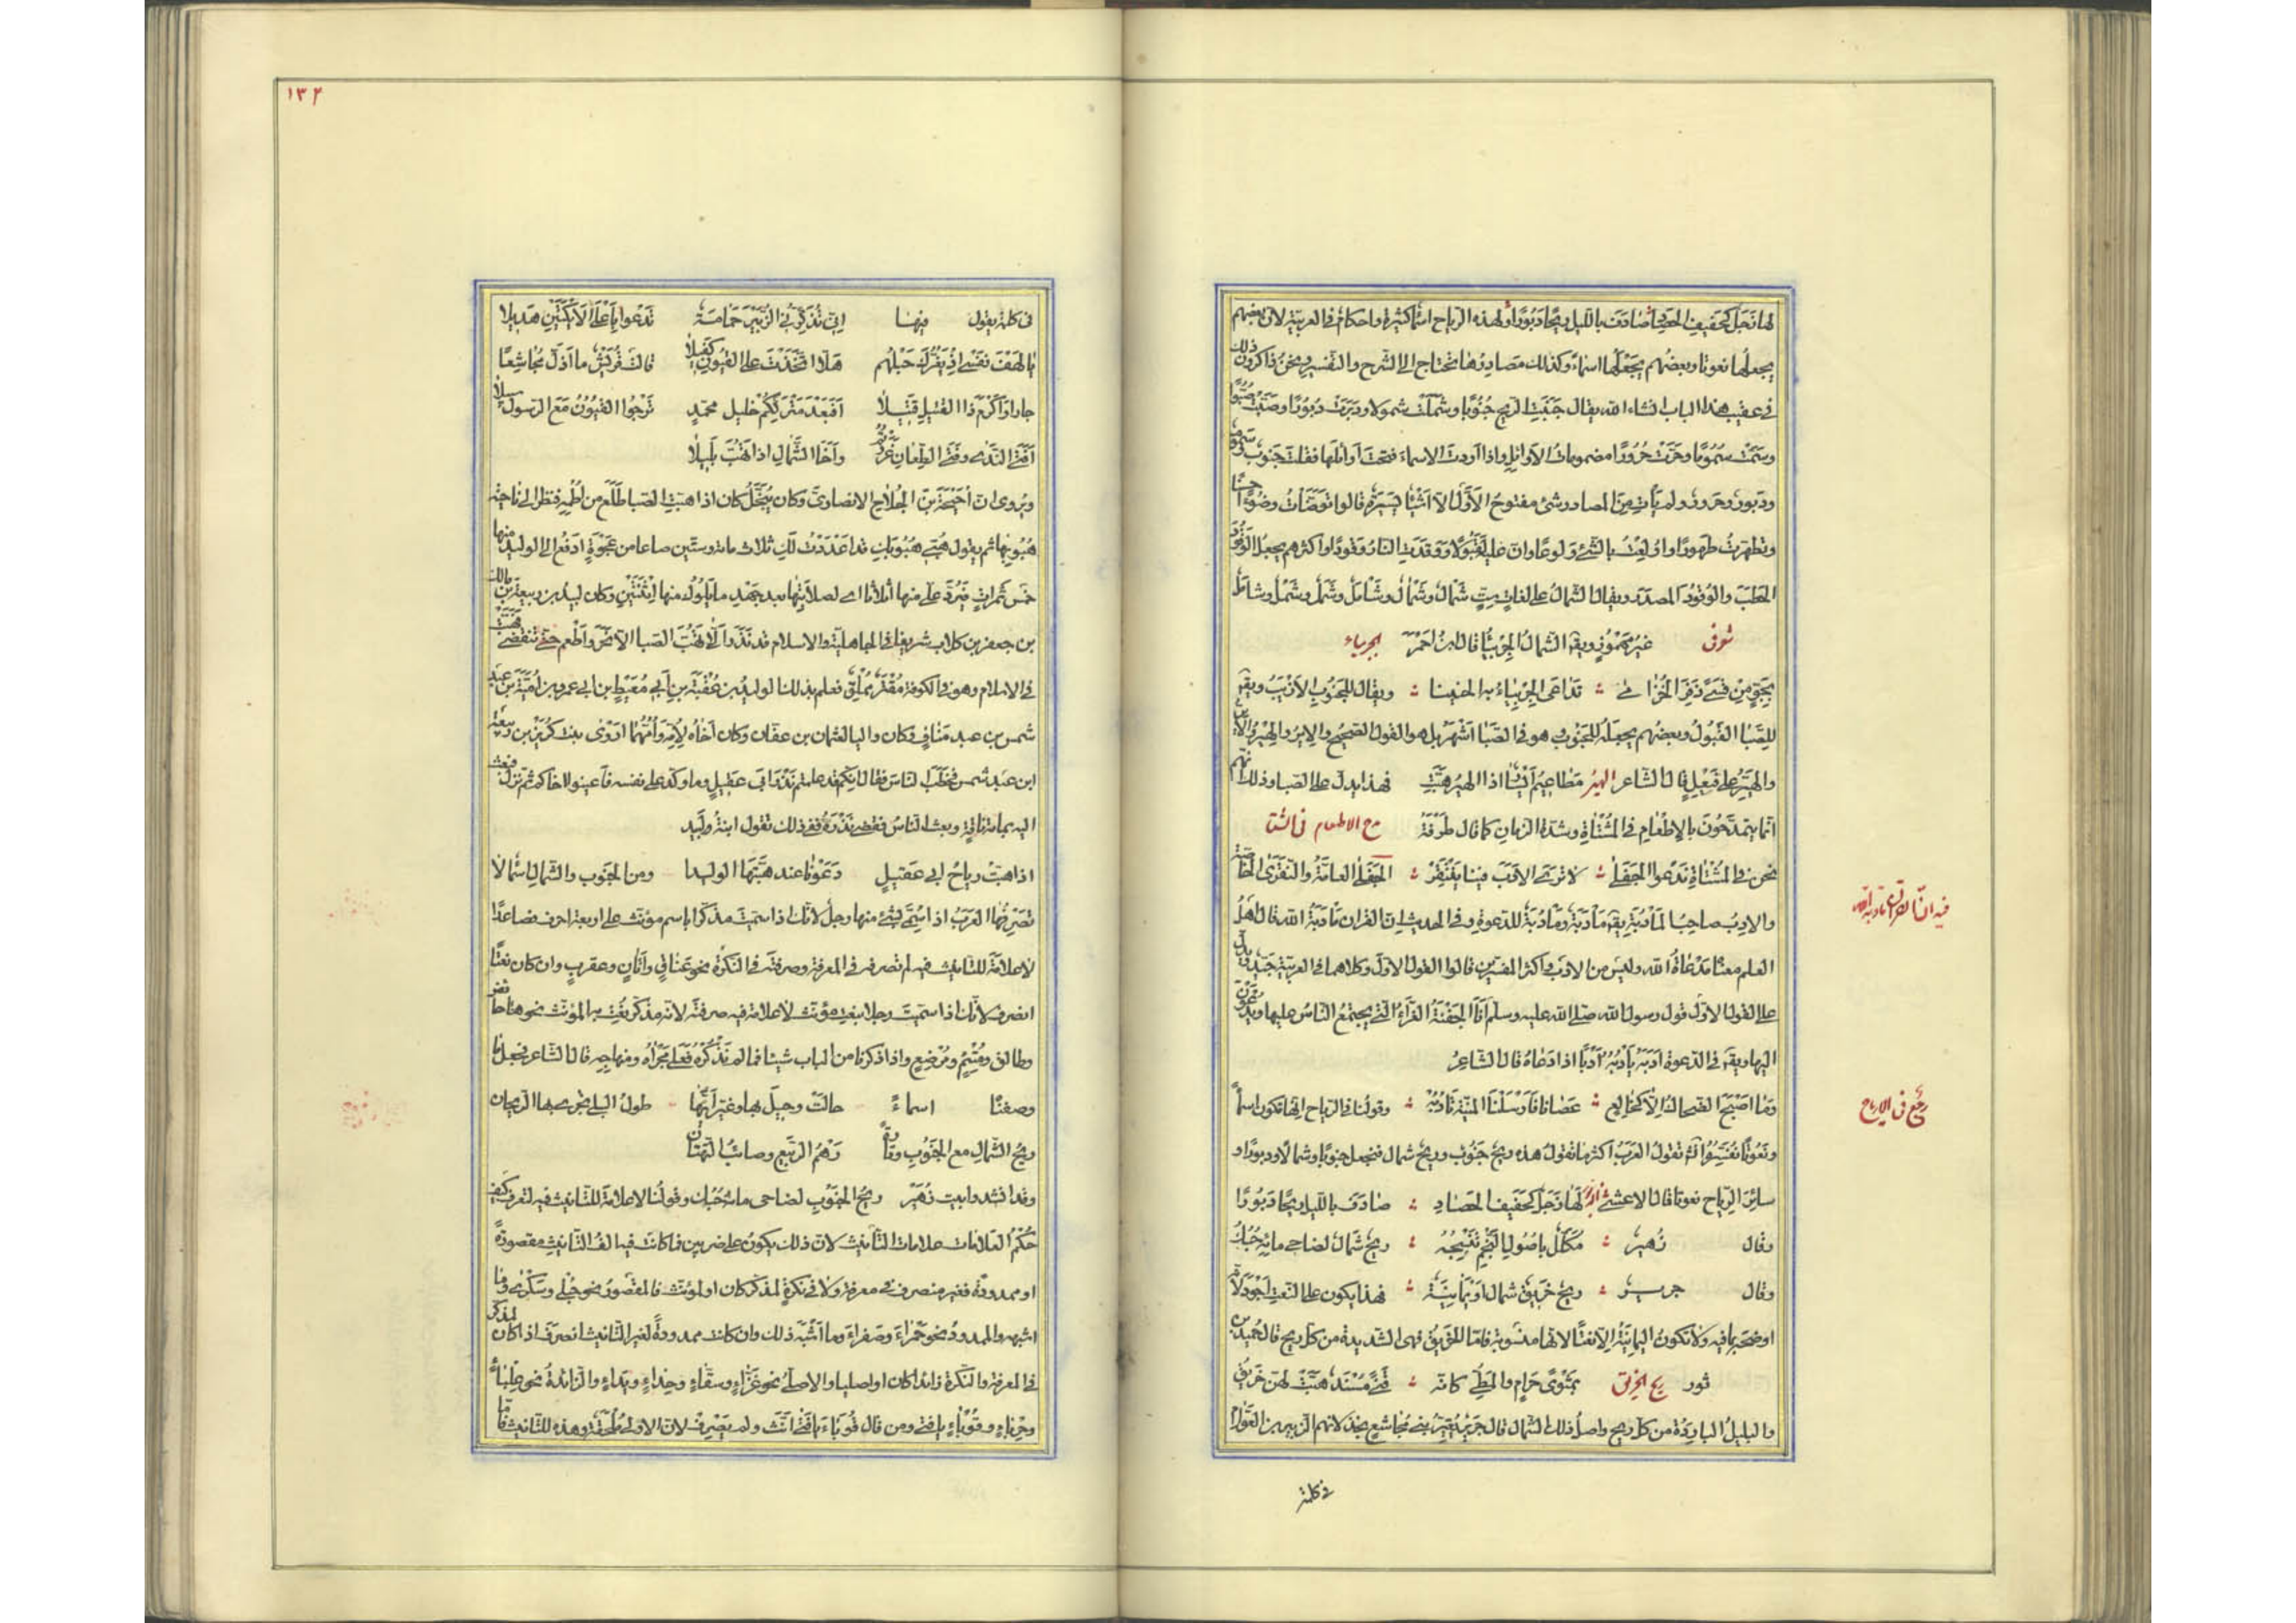 لها زجل كحفيف الحصاد صادف بالليل ريحا دبورا ولهذه الرياح اسماء كثيرة واحكام في العربية لان بعضهم
يجعلها نعوتا وبعضهم يجعلها اسماء وكذلك مصادرها تحتاج الى الشرح والتفسير ونحن ذاكرون ذلك
في عقيب هذا الباب انشاء الله يقال جَنَبَت الريح جُنُوبا وشملت شمولا ودبرت دبورا وصبت صبوا
وسمت سموما وحرت حرورا مضمومات الاوائل واذا اردت الاسماء فتحت اوائلها فقلت جنوب وسموم
ودبور وحرور ولم يأت من المصادر شئ مفتوح الاول الا اشياء يسيرة قالوا توضأت وضوءا حسنا
وتطهرت طهورا واولعت بالشئ ولوعا وان عليه لقبولا ووقدت النار وقودا واكثرهم يجعل الوقود
الحطب والوُقود المصدر ويقال الشمال على لغات ست شمال وشمأل وشأمل وشمل وشمل وشامل
غير مهموز ويق الشمال الجربياء قال ابن احمر الجربياء
بجو من قسى ذفر الخزامى تداعى الجربياء به الحنينا ويقال للجنوب الازيب ويق
للصبا القبول وبعضهم يجعله للجنوب وهو في الصبا اشهر بل هو القول الصحيح والاير والهير
والهير على فيعل قال الشاعر الهير مطاعيم ايسار اذا الهير هبت فهذا يدل على الصبا وذلك انهم
انما يتمدحون بالاطعام في المشتاة وشدة الزمان كما قال طرفة مدح الاطعام في الشتا
نحن في المشتاة ندعوا الجفلى لا ترى الادب فينا ينتقر الجفلى العامة والنقرى الخاصة
والادب صاحب المأدبة يق مأدبة ومأدُبة للدعوة وفي الحديث ان القران مادبة الله قال اهل
فيه ان القران مادبة الله
العلم معناه مدعاة الله وليس من الادب واكثر المفسرين قالوا القول الاول وكلاهما في العربية جيد ويدل
على القول الاول قول رسول الله صلى الله عليه وسلم انا الجفنة الغراء التي يجتمع الناس عليها ويدعون
اليها ويق في الدعوة ادبه يأدبه ادبا اذا دعاه قال الشاعر
وما اصبح الضحاك الا كخالع عصانا فارسلنا المنية تادبه وقولنا في الرياح انها تكون اسما
رجع في الارياح
ونعوتا نفسره انما تقول العرب اكثر ما تقول هذه ريح جنوب وريح شمال فتجعل جنوبا وشمالا ودبورا و
سائر الرياح نعوتا قال الاعشى لها زجل كحفيف الحصاد صادف بالليل ريحا دبورا
وقال زهير مكلل باصول النجم تنسجه ريح شمال لضاحي مائه حبك
وقال جرير ريح خريق شمال او يمانية فهذا يكون على النعت اجود لانه
اوضح بما فيه ولا تكون اليمانية الا نعتا لانها منسوبة فاما الخريق فهي الشديدة من كل ريح قال حميد بن
ثور ريح الخريق بمثوى حرام والمطي كانه قنى مسند هبت لهن خريق
والبليل الباردة من كل ريح واصل ذلك الشمال قال جرير يعير بني مجاشع بخذلانهم الزبير بن العوام
في كلمة
١٣٢
في كلمة يقول فيها اني تذكرني الزبير حمامة تدعوا باعلى الايكتين هديلا
يا لهف نفسي اذ يغرك حبلهم هلا اتخذت على القيون كفيلا قالت قريش ما اذل مجاشعا
جارا واكرم ذا القتيل قتيلا افبعد مترككم خليل محمد ترجوا القيون مع الرسول سبيلا
افتى الندى وفتى الطعان غررتم واخا الشمال اذا تهب بليلا
ويروى ان احيحة بن الجلاح الانصاري وكان يبخل كان اذا هبت الصبا طلع من اطمه فنظر الى ناحية
هبوبها ثم يقول هبي هبوبك قد اعددت لك ثلاث مائة وستين صاعا من عجوة ادفع الى الوليد منها
خمس تمرات فيرد علي منها ثلاثا اي لصلابتها بعد جهد ما يلوك منها اثنتين وكان لبيد بن ربيعة بن مالك
بن جعفر بن كلاب شريفا في الجاهلية والاسلام قد نذر الا تهب الصبا الا نحر واطعم حتى تنقضي فهبت
في الاسلام وهو في الكوفة مقتر مملق فعلم بذلك الوليد بن عقبة بن ابي معيط بن ابي عمرو بن امية بن عبد
شمس بن عبد مناف وكان واليا لعثمان بن عفان وكان اخاه لامه وامهما اروى بنت كريز بن ربيعة
ابن عبد شمس فخطب الناس فقال انكم قد علمتم نذر ابي عقيل وما وكد على نفسه فاعينوا اخاكم ثم نزل فبعث
اليه بمائة ناقة وبعث الناس فقضى نذره ففي ذلك تقول ابنة ولبيد
اذا هبت رياح ابي عقيل دعونا عند هبتها الوليدا ومن الجنوب والشمال شمالا
تصرفها العرب اذا سمي بشئ منها رجل لانك اذا سميت مذكرا باسم مؤنث على اربعة احرف فصاعدا
لا علامة للتانيث فيه لم تصرفه في المعرفة وصرفته في النكرة نحو عناق واتان وعقرب وان كان نعتا
انصرف لانك اذا سميت رجلا بنعت مؤنث لا علامة فيه صرفته لانه مذكر نعت به المؤنث نحو حائض
وطالق ومتئم ومرضع واذا ذكرنا من الباب شيئا فما لم نذكره فعلى مجراه ومنهاجه قال الشاعر فجعل ما
وصفنا اسماء حالت وحيل بها وغير آيها طول البلى تجري به الريحان
ريح الشمال مع الجنوب وتارة رهم الربيع وصائب التهتان
وقد انشدوا بيت زهير ريح الجنوب لضاحي مائه حبك وقولنا لا علامة للتانيث فيه لتعرف كيف
حكم العلامات علامات التانيث لان ذلك يكون على ضربين فما كانت فيه الف التانيث مقصورة
او ممدودة فغير منصرف في معرفة ولا في نكرة لمذكر كان او لمؤنث فالمقصور نحو حبلى وسكرى وما
اشبهه والممدود نحو حمراء وصفراء وما اشبه ذلك وان كانت ممدودة لغير التانيث انصرف اذا كان لمذكر
في المعرفة والنكرة زائدا كان او اصليا والاصلي نحو غزاء وسقاء وحذاء ورداء والزائدة نحو علباء
وحرباء وقوباء يا فتى ومن قال قوباء يا فتى انث ولم يصرف لان الاولى ملحقة وهذه للتانيث فاما